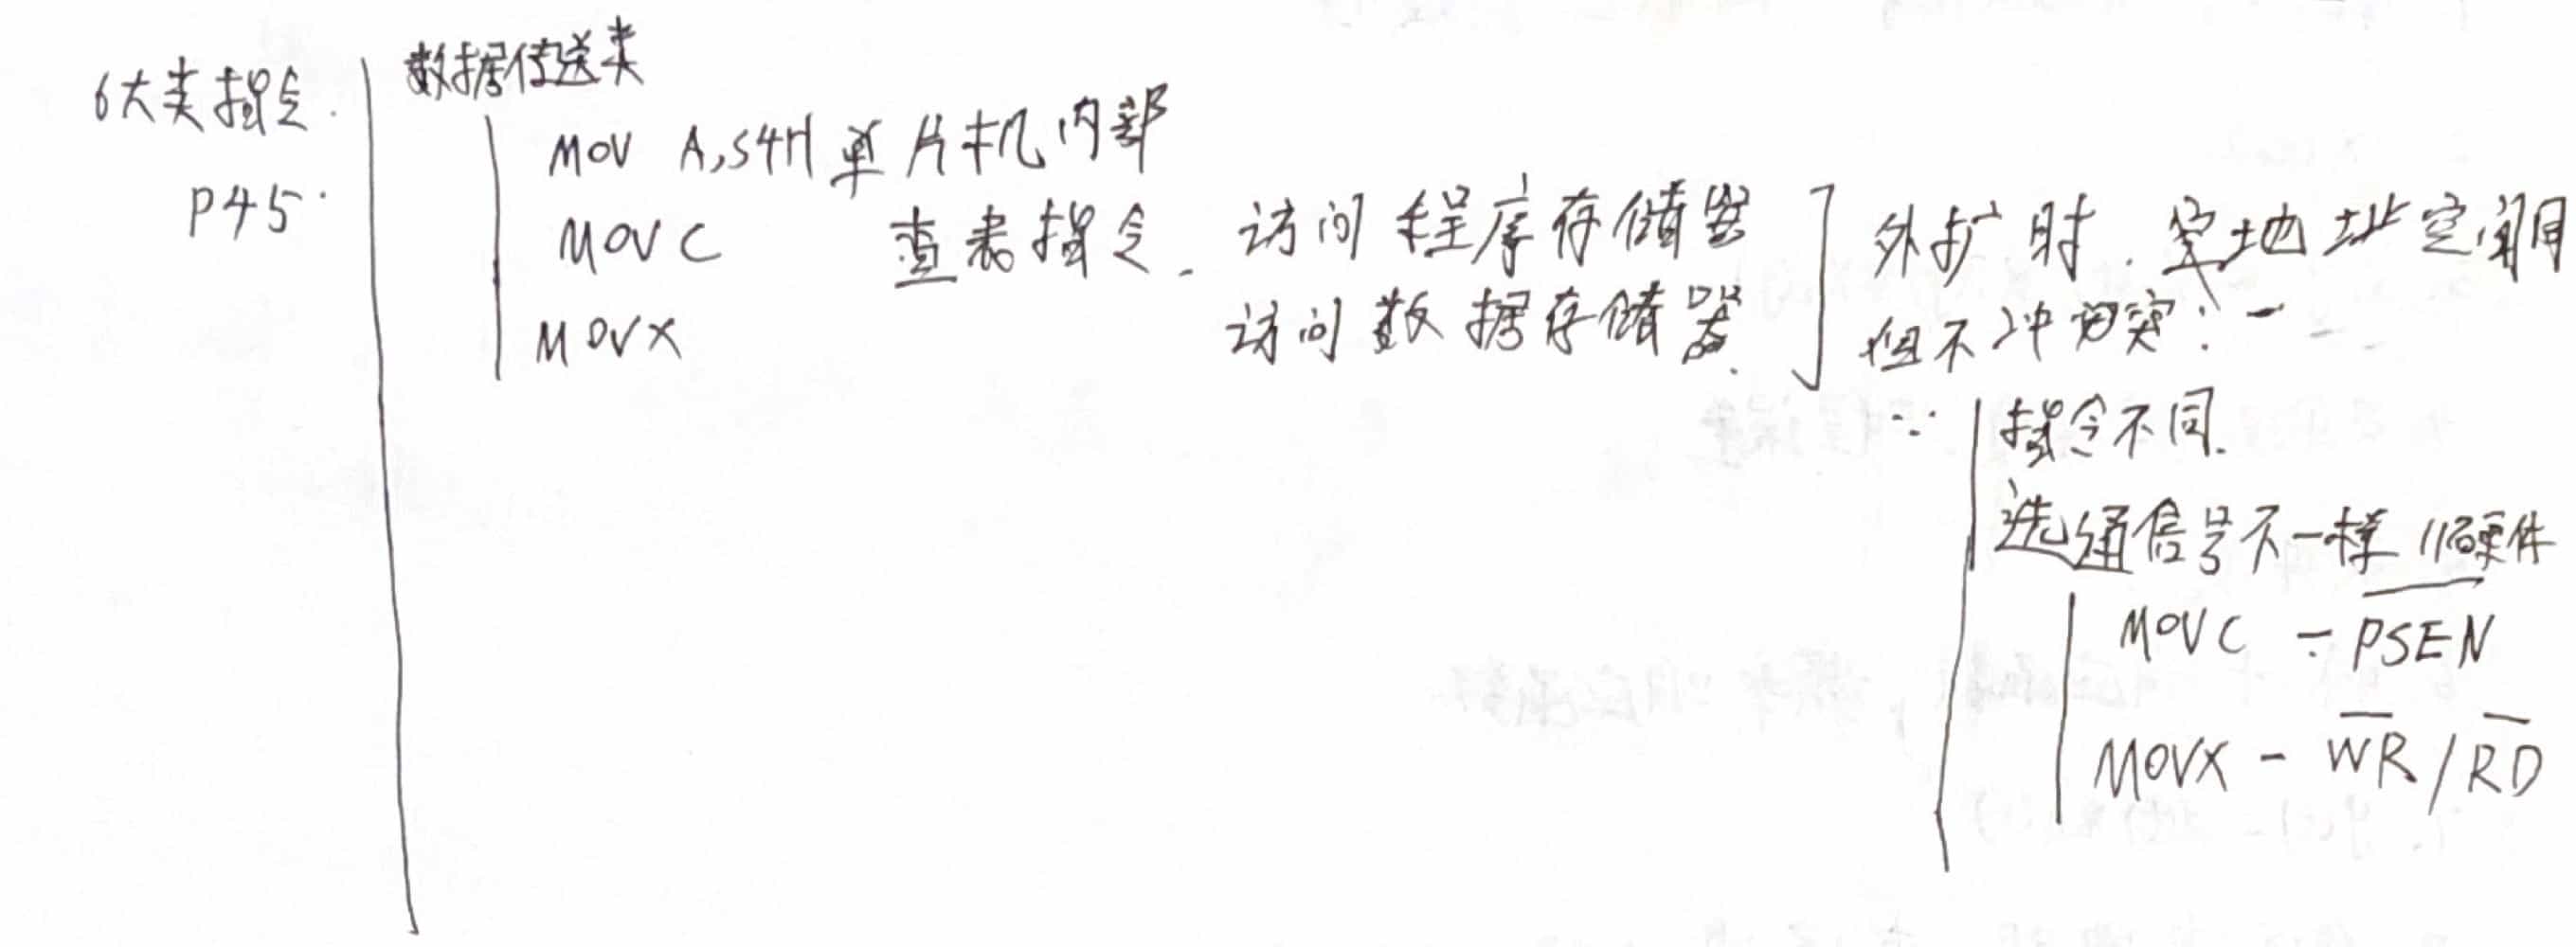 6大类指令.
P45.
数据传送类
MOV A,54H 单片机内部
MOVC 查表指令. 访问程序存储器
MOVX 访问数据存储器.
外扩时. 地址空间同
但不冲突: -
∵ 指令不同.
选通信号不一样 //硬件
MOVC - PSEN
MOVX - WR / RD